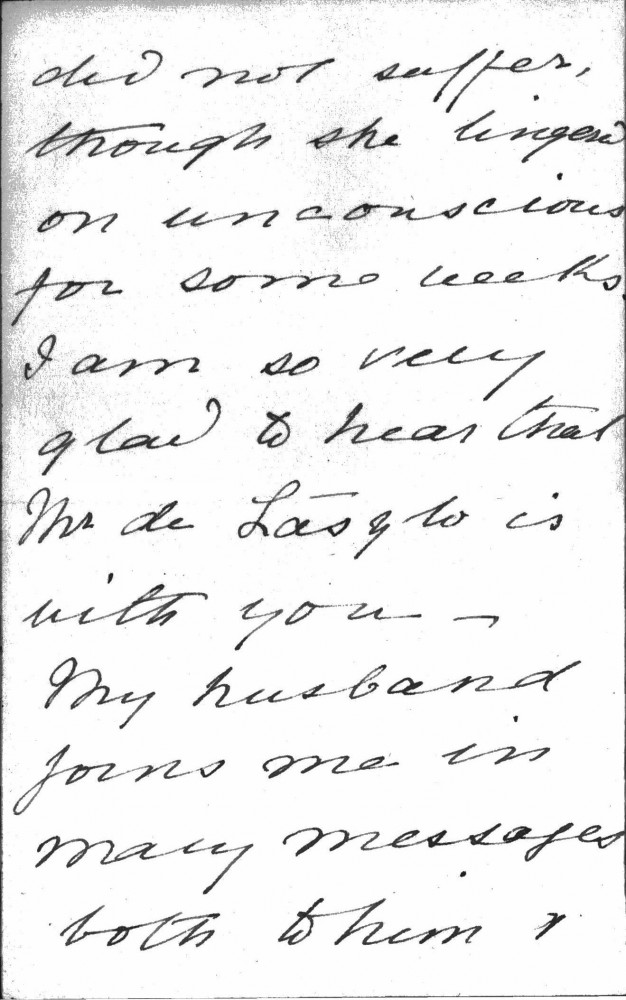 did not suffer,
though she lingered
on unconscious
for some weeks.
I am so very
glad to hear that
Mr de László is
with you —
My husband
joins me in
many messages
both to him &